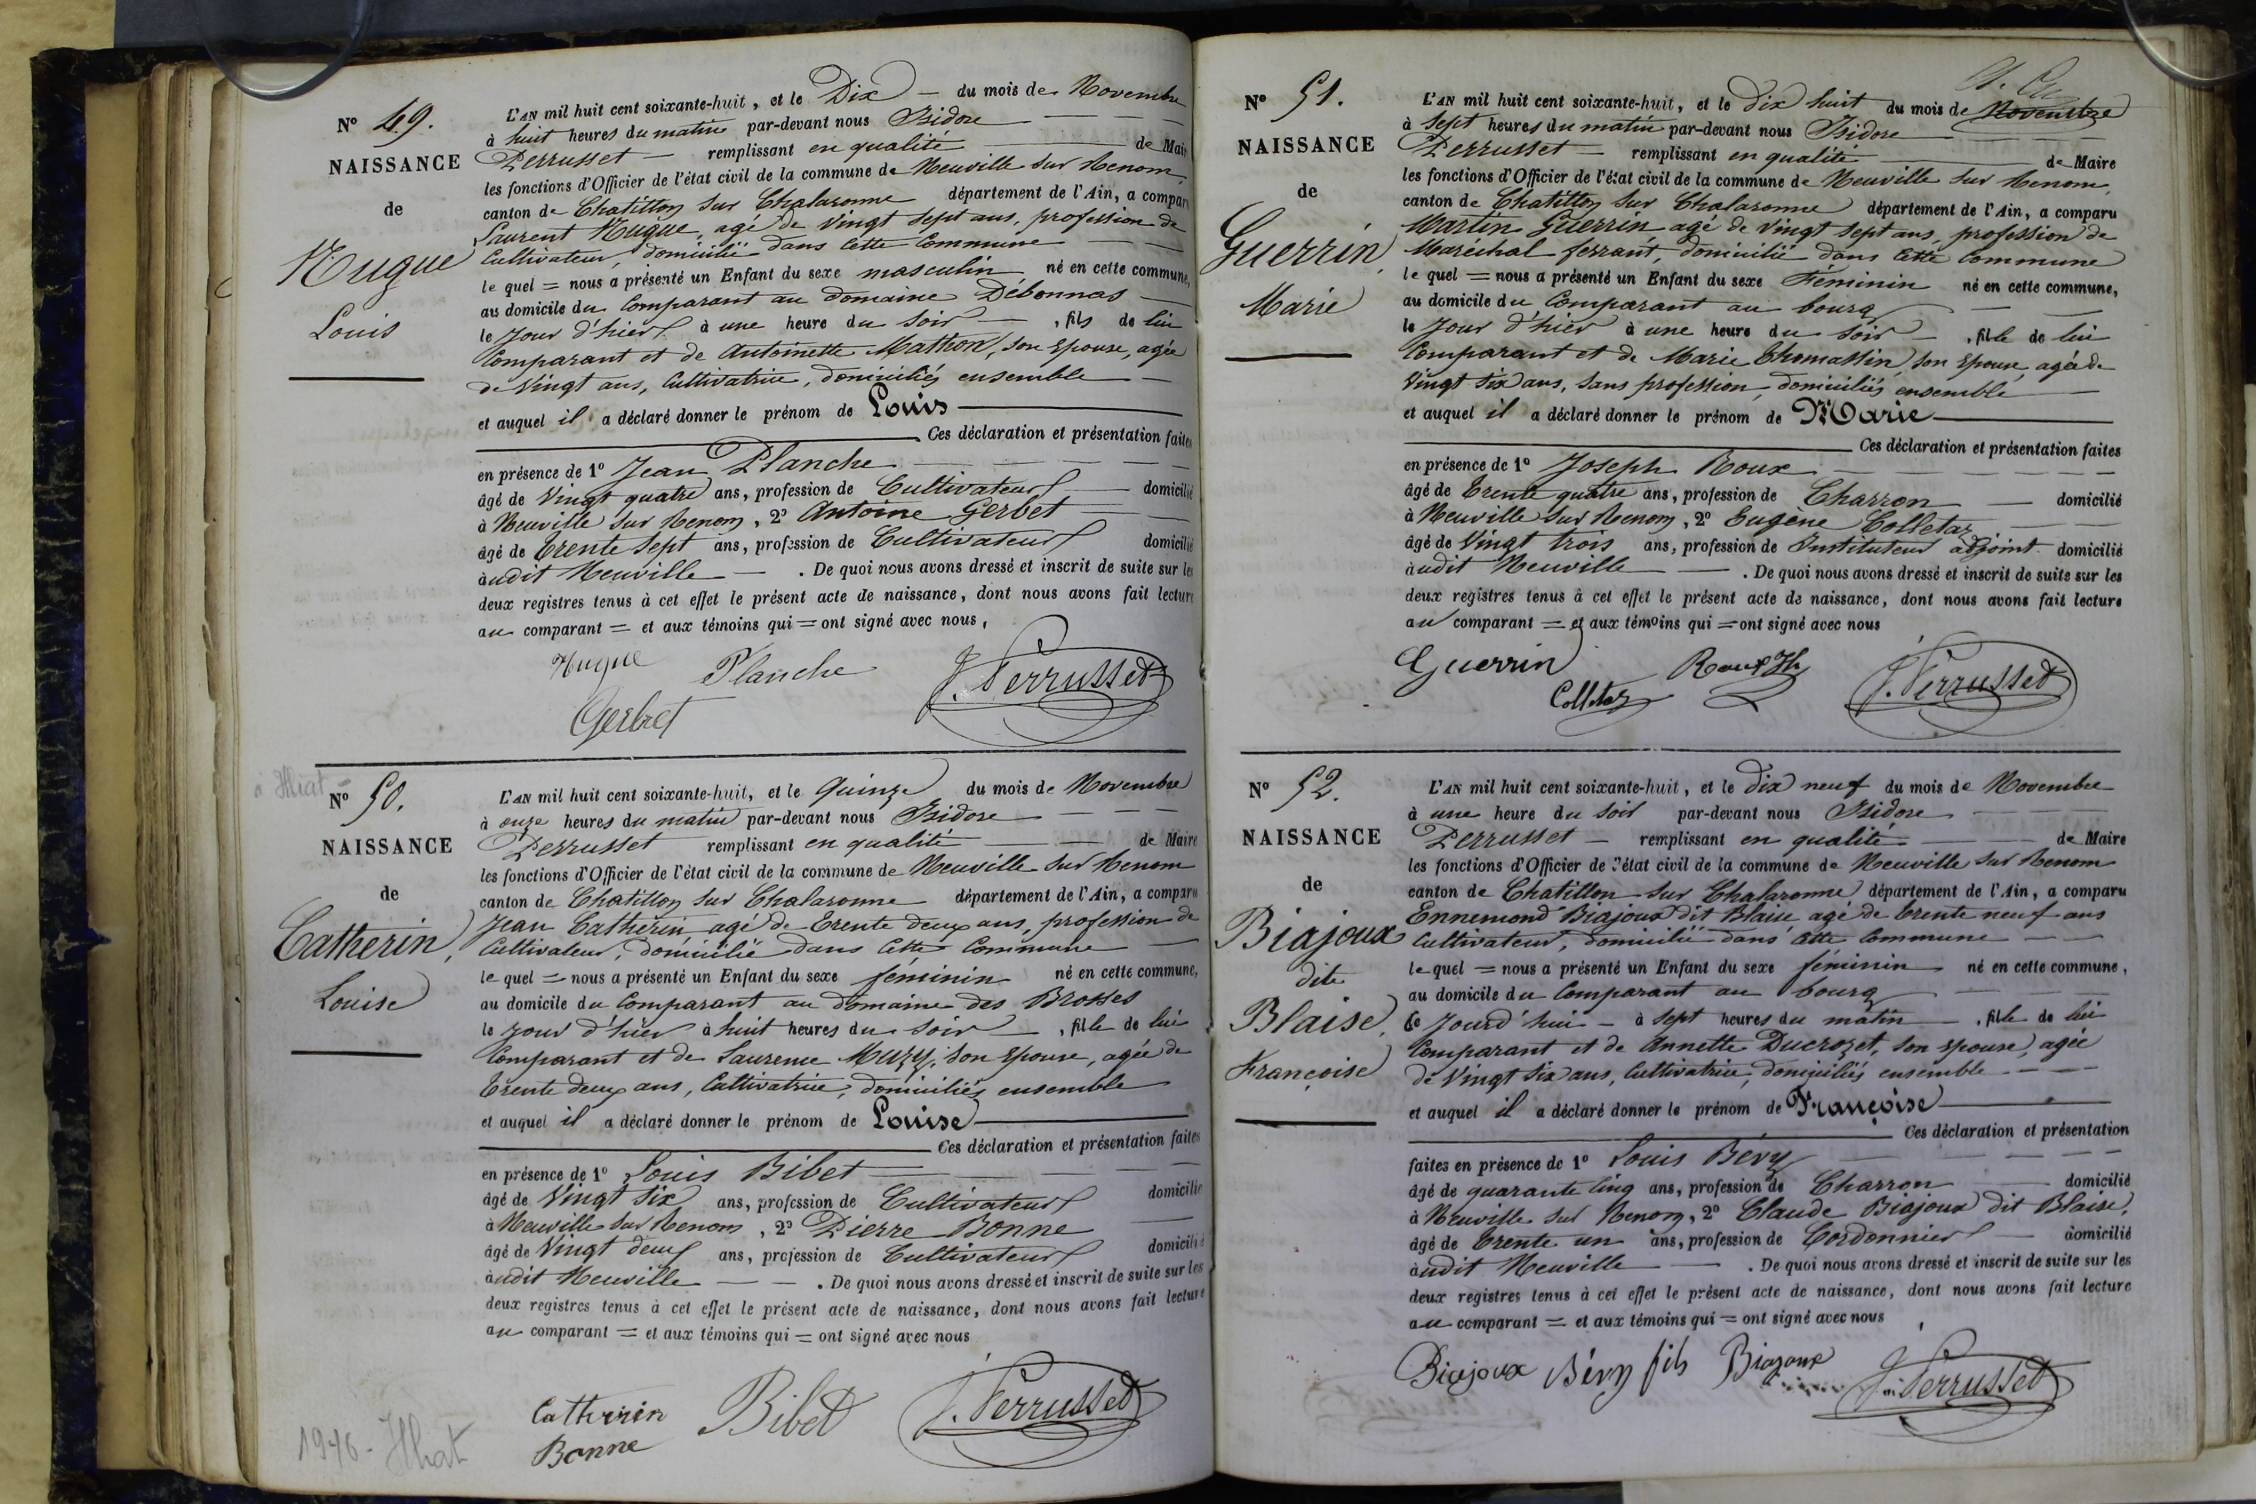 N° 49.
NAISSANCE
de
Hugue
Louis
L'AN mil huit cent soixante-huit, et le Dix — du mois de Novembre
à huit heures du matin par-devant nous Isidore
Perrusset — remplissant en qualité de Mai
les fonctions d'Officier de l'état civil de la commune de Neuville sur Renom,
canton de Chatillon sur Chalaronne département de l'Ain, a comparu
Laurent Hugue, agé de vingt sept ans, profession de
Cultivateur, domicilié dans cette Commune
le quel = nous a présenté un Enfant du sexe masculin né en cette commune,
au domicile du Comparant au domaine Débonnas
le jour d'hier à une heure du soir — , fils de lui
Comparant et de Antoinette Mathon, son Epouse, agée
de Vingt ans, Cultivatrice, domiciliés ensemble —
et auquel il a déclaré donner le prénom de Louis
Ces déclaration et présentation faites
en présence de 1° Jean Planche
âgé de Vingt quatre ans, profession de Cultivateur domicilié
à Neuville sur Renom, 2° Antoine Gerbet
âgé de Trente sept ans, profession de Cultivateur domicilié
àudit Neuville — . De quoi nous avons dressé et inscrit de suite sur les
deux registres tenus à cet effet le présent acte de naissance, dont nous avons fait lecture
au comparant = et aux témoins qui = ont signé avec nous,
Hugue Planche J. Perrusset
Gerbet
à Thiat
N° 50.
NAISSANCE
de
Catherin,
Louise
L'AN mil huit cent soixante-huit, et le Quinze du mois de Novembre
à onze heures du matin par-devant nous Isidore
Perrusset remplissant en qualité de Maire
les fonctions d'Officier de l'état civil de la commune de Neuville sur Renom
canton de Chatillon sur Chalaronne département de l'Ain, a comparu
Jean Catherin agé de Trente deux ans, profession de
Cultivateur, domicilié dans cette Commune
le quel = nous a présenté un Enfant du sexe féminin né en cette commune,
au domicile du Comparant au domaine des Brosses
le jour d'hier à huit heures du soir — , fille de lui
Comparant et de Laurence Muzy, son Epouse, agée de
Trente deux ans, Cultivatrice, domiciliés ensemble
et auquel il a déclaré donner le prénom de Louise
Ces déclaration et présentation faites
en présence de 1° Louis Bibet
âgé de Vingt six ans, profession de Cultivateur domicilié
à Neuville sur Renom, 2° Pierre Bonne
âgé de Vingt deux ans, profession de Cultivateur domicilié
àudit Neuville — — . De quoi nous avons dressé et inscrit de suite sur les
deux registres tenus à cet effet le présent acte de naissance, dont nous avons fait lecture
au comparant = et aux témoins qui = ont signé avec nous
Catherin Bibet J. Perrusset
Bonne
1946 - Thiat
N° 51.
NAISSANCE
de
Guerrin,
Marie
L'AN mil huit cent soixante-huit, et le dix huit du mois de Novembre
à Sept heures du matin par-devant nous Isidore
Perrusset — remplissant en qualité de Maire
les fonctions d'Officier de l'état civil de la commune de Neuville sur Renom,
canton de Chatillon sur Chalaronne département de l'Ain, a comparu
Martin Guerrin agé de Vingt sept ans, profession de
Maréchal ferrant, domicilié dans cette Commune
le quel = nous a présenté un Enfant du sexe Féminin né en cette commune,
au domicile du Comparant au bourg
le jour d'hier à une heure du soir — , fille de lui
Comparant et de Marie Thomassin, son Epouse, agée de
Vingt six ans, sans profession, domiciliés ensemble
et auquel il a déclaré donner le prénom de Marie
Ces déclaration et présentation faites
en présence de 1° Joseph Roux
âgé de Trente quatre ans, profession de Charron — domicilié
à Neuville sur Renom, 2° Eugène Colletaz
âgé de Vingt trois ans, profession de Instituteur adjoint domicilié
àudit Neuville — . De quoi nous avons dressé et inscrit de suite sur les
deux registres tenus à cet effet le présent acte de naissance, dont nous avons fait lecture
au comparant = et aux témoins qui = ont signé avec nous
Guerrin Roux Jh J. Perrusset
Colletaz
N° 52.
NAISSANCE
de
Biajoux
dite
Blaise,
Françoise
L'AN mil huit cent soixante-huit, et le Dix neuf du mois de Novembre
à une heure du soir par-devant nous Isidore
Perrusset — remplissant en qualité de Maire
les fonctions d'Officier de l'état civil de la commune de Neuville sur Renom
canton de Chatillon sur Chalaronne département de l'Ain, a comparu
Ennemond Biajoux dit Blaise agé de trente neuf ans
Cultivateur, domicilié dans cette Commune
le quel = nous a présenté un Enfant du sexe féminin né en cette commune,
au domicile du Comparant au bourg
Ce Jourd'hui — à sept heures du matin — , fille de lui
Comparant et de Annette Ducrozet, son epouse, agée
de Vingt six ans, Cultivatrice, domiciliés ensemble
et auquel il a déclaré donner le prénom de Françoise
Ces déclaration et présentation
faites en présence de 1° Louis Bévy
âgé de quarante cinq ans, profession de Charron domicilié
à Neuville sur Renom, 2° Claude Biajoux dit Blaise,
âgé de Trente un ans, profession de Cordonnier domicilié
àudit Neuville — . De quoi nous avons dressé et inscrit de suite sur les
deux registres tenus à cet effet le présent acte de naissance, dont nous avons fait lecture
au comparant = et aux témoins qui = ont signé avec nous
Biajoux Bévy fils Biajoux J. Perrusset